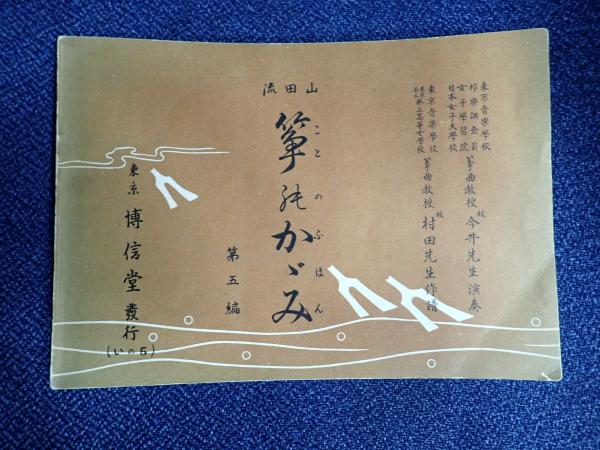 東京音樂學校
邦樂調査員
女子學習院
日本女子大學校
箏曲教授
故
今井先生演奏
東京音樂學校
東京府立第三高等女學校
箏曲教授
故
村田先生作譜
流田山
箏のかゞみ
ことのふほん
第五編
東京
博信堂
發行
(いの5)